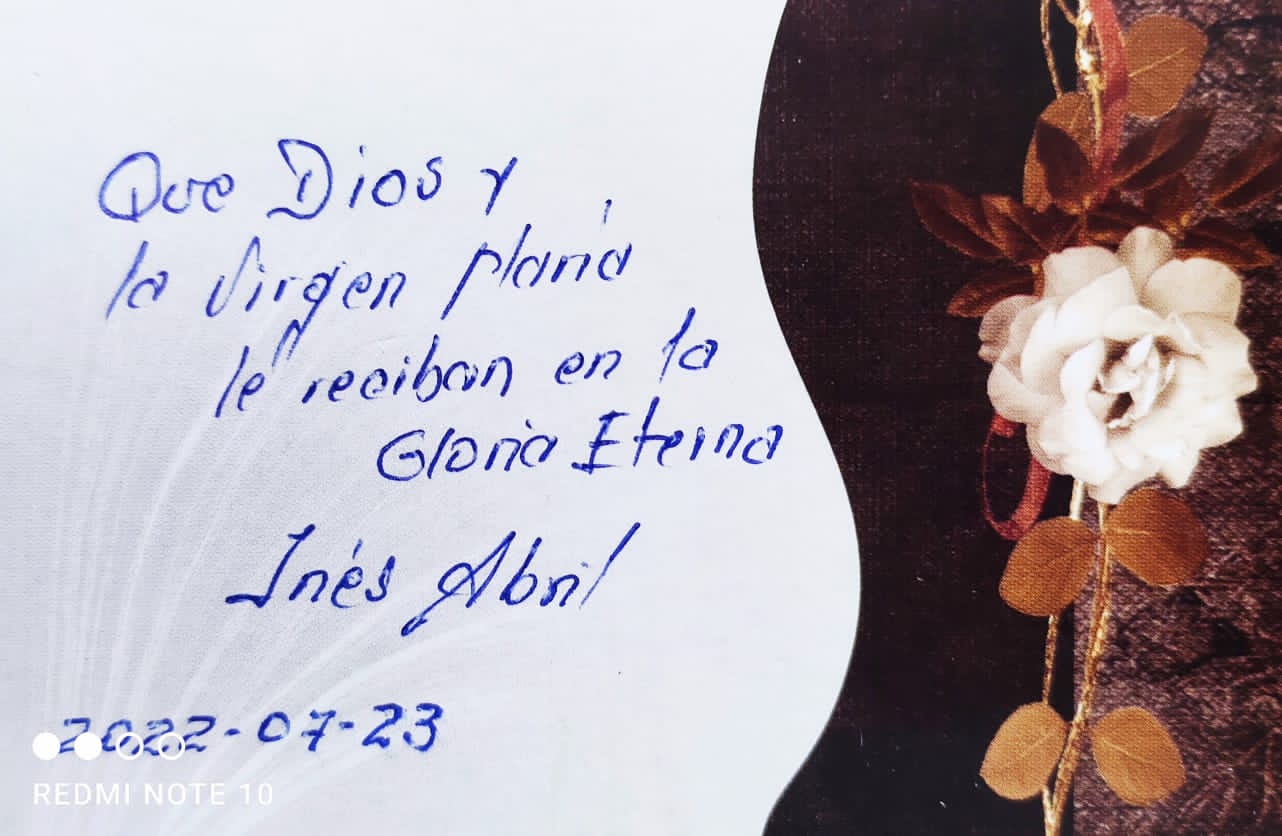 Que Dios y
la Virgen María
le reciban en la
Gloria Eterna
Inés Abril
2022-07-23
REDMI NOTE 10